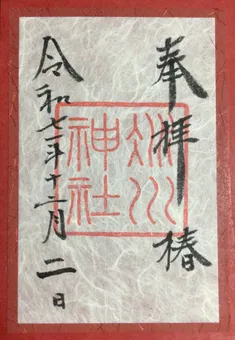 奉拝 椿
川
神社
令和七年十二月二日